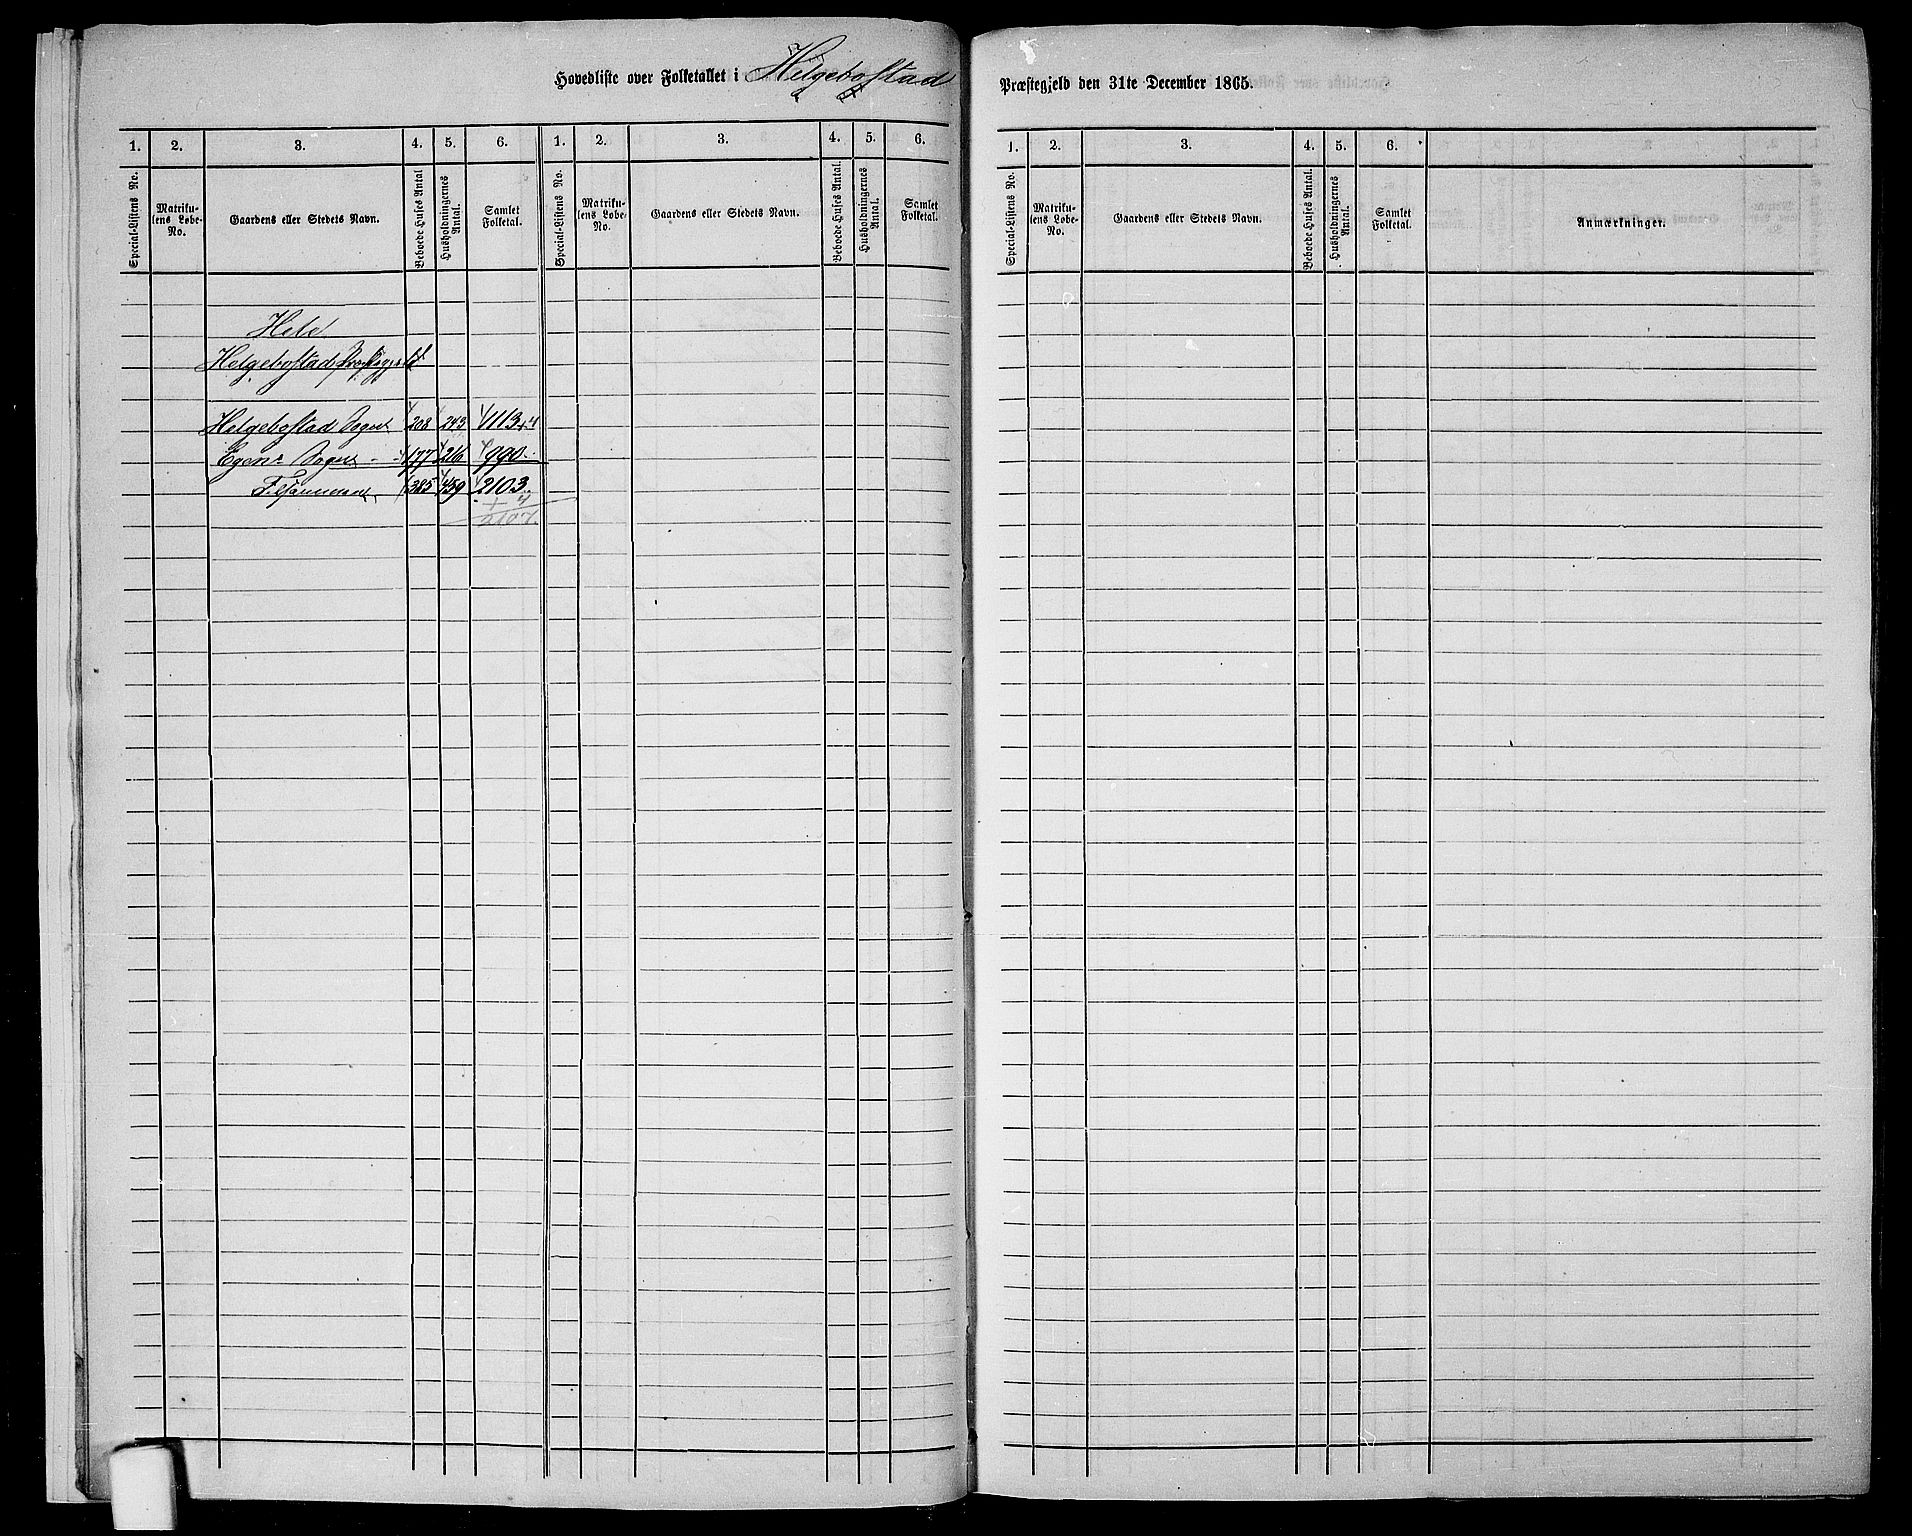 Hovedliste over Folketallet i Helgebostad Præstegjeld den 31te December 1865.
1. 2. 3. 4. 5. 6. 1. 2. 3. 4. 5. 6. 1. 2. 3. 4. 5. 6.
Special-Listens No. Matriku-lens Løbe-No. Gaardens eller Stedets Navn. Beboede Huses Antal Husholdningernes Antal. Samlet Folketal. Special-Listens No. Matriku-lens Løbe-No. Gaardens eller Stedets Navn. Beboede Huses Antal. Husholdningernes Antal. Samlet Folketal. Special-Listens No. Matriku-lens Løbe-No. Gaardens eller Stedets Navn. Beboede Huses Antal. Husholdningernes Antal. Samlet Folketal. Anmærkninger.
Hele
Helgebostad Præstegjeld
Helgebostad Sogn 208 243 1113 + 4
Egens Sogn 177 216 990
Tilsammen 385 459 2103
+ 4
2107.